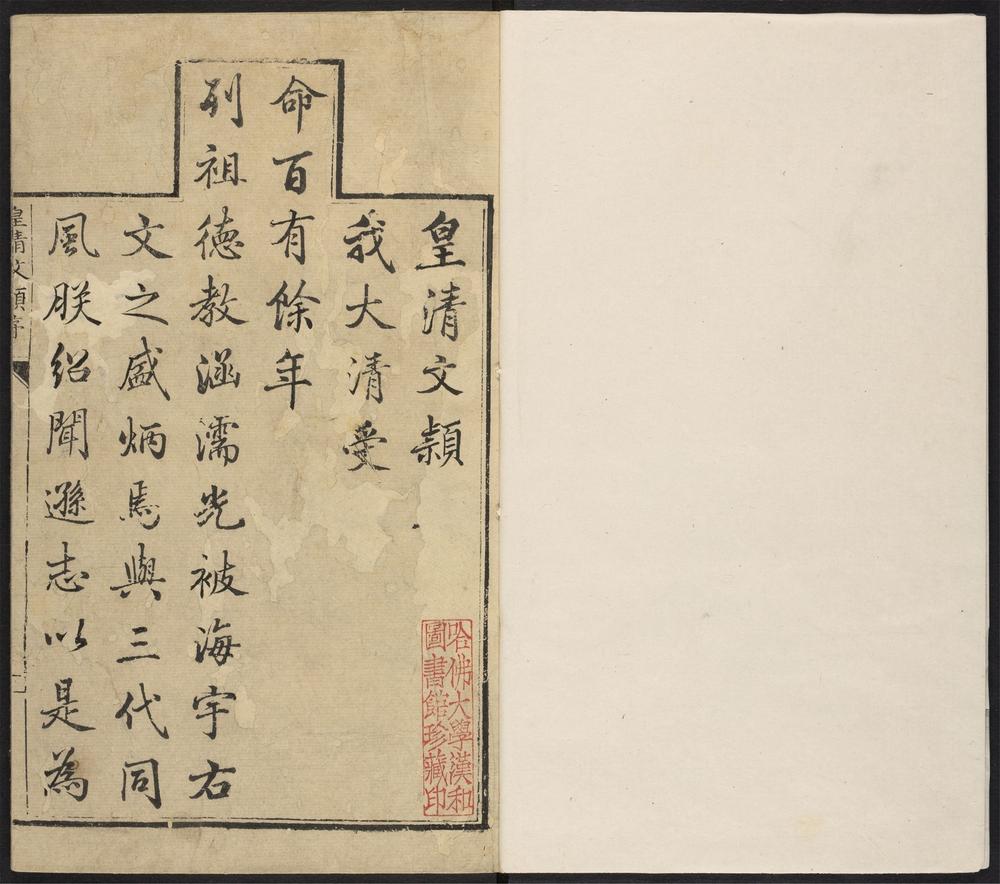 皇清文頴
我大清受
命百有餘年
列祖德教涵濡光被海宇右
文之盛炳焉與三代同
風朕紹聞遜志以是為
皇清文頴序
一
哈佛大學漢和
圖書館珍藏印